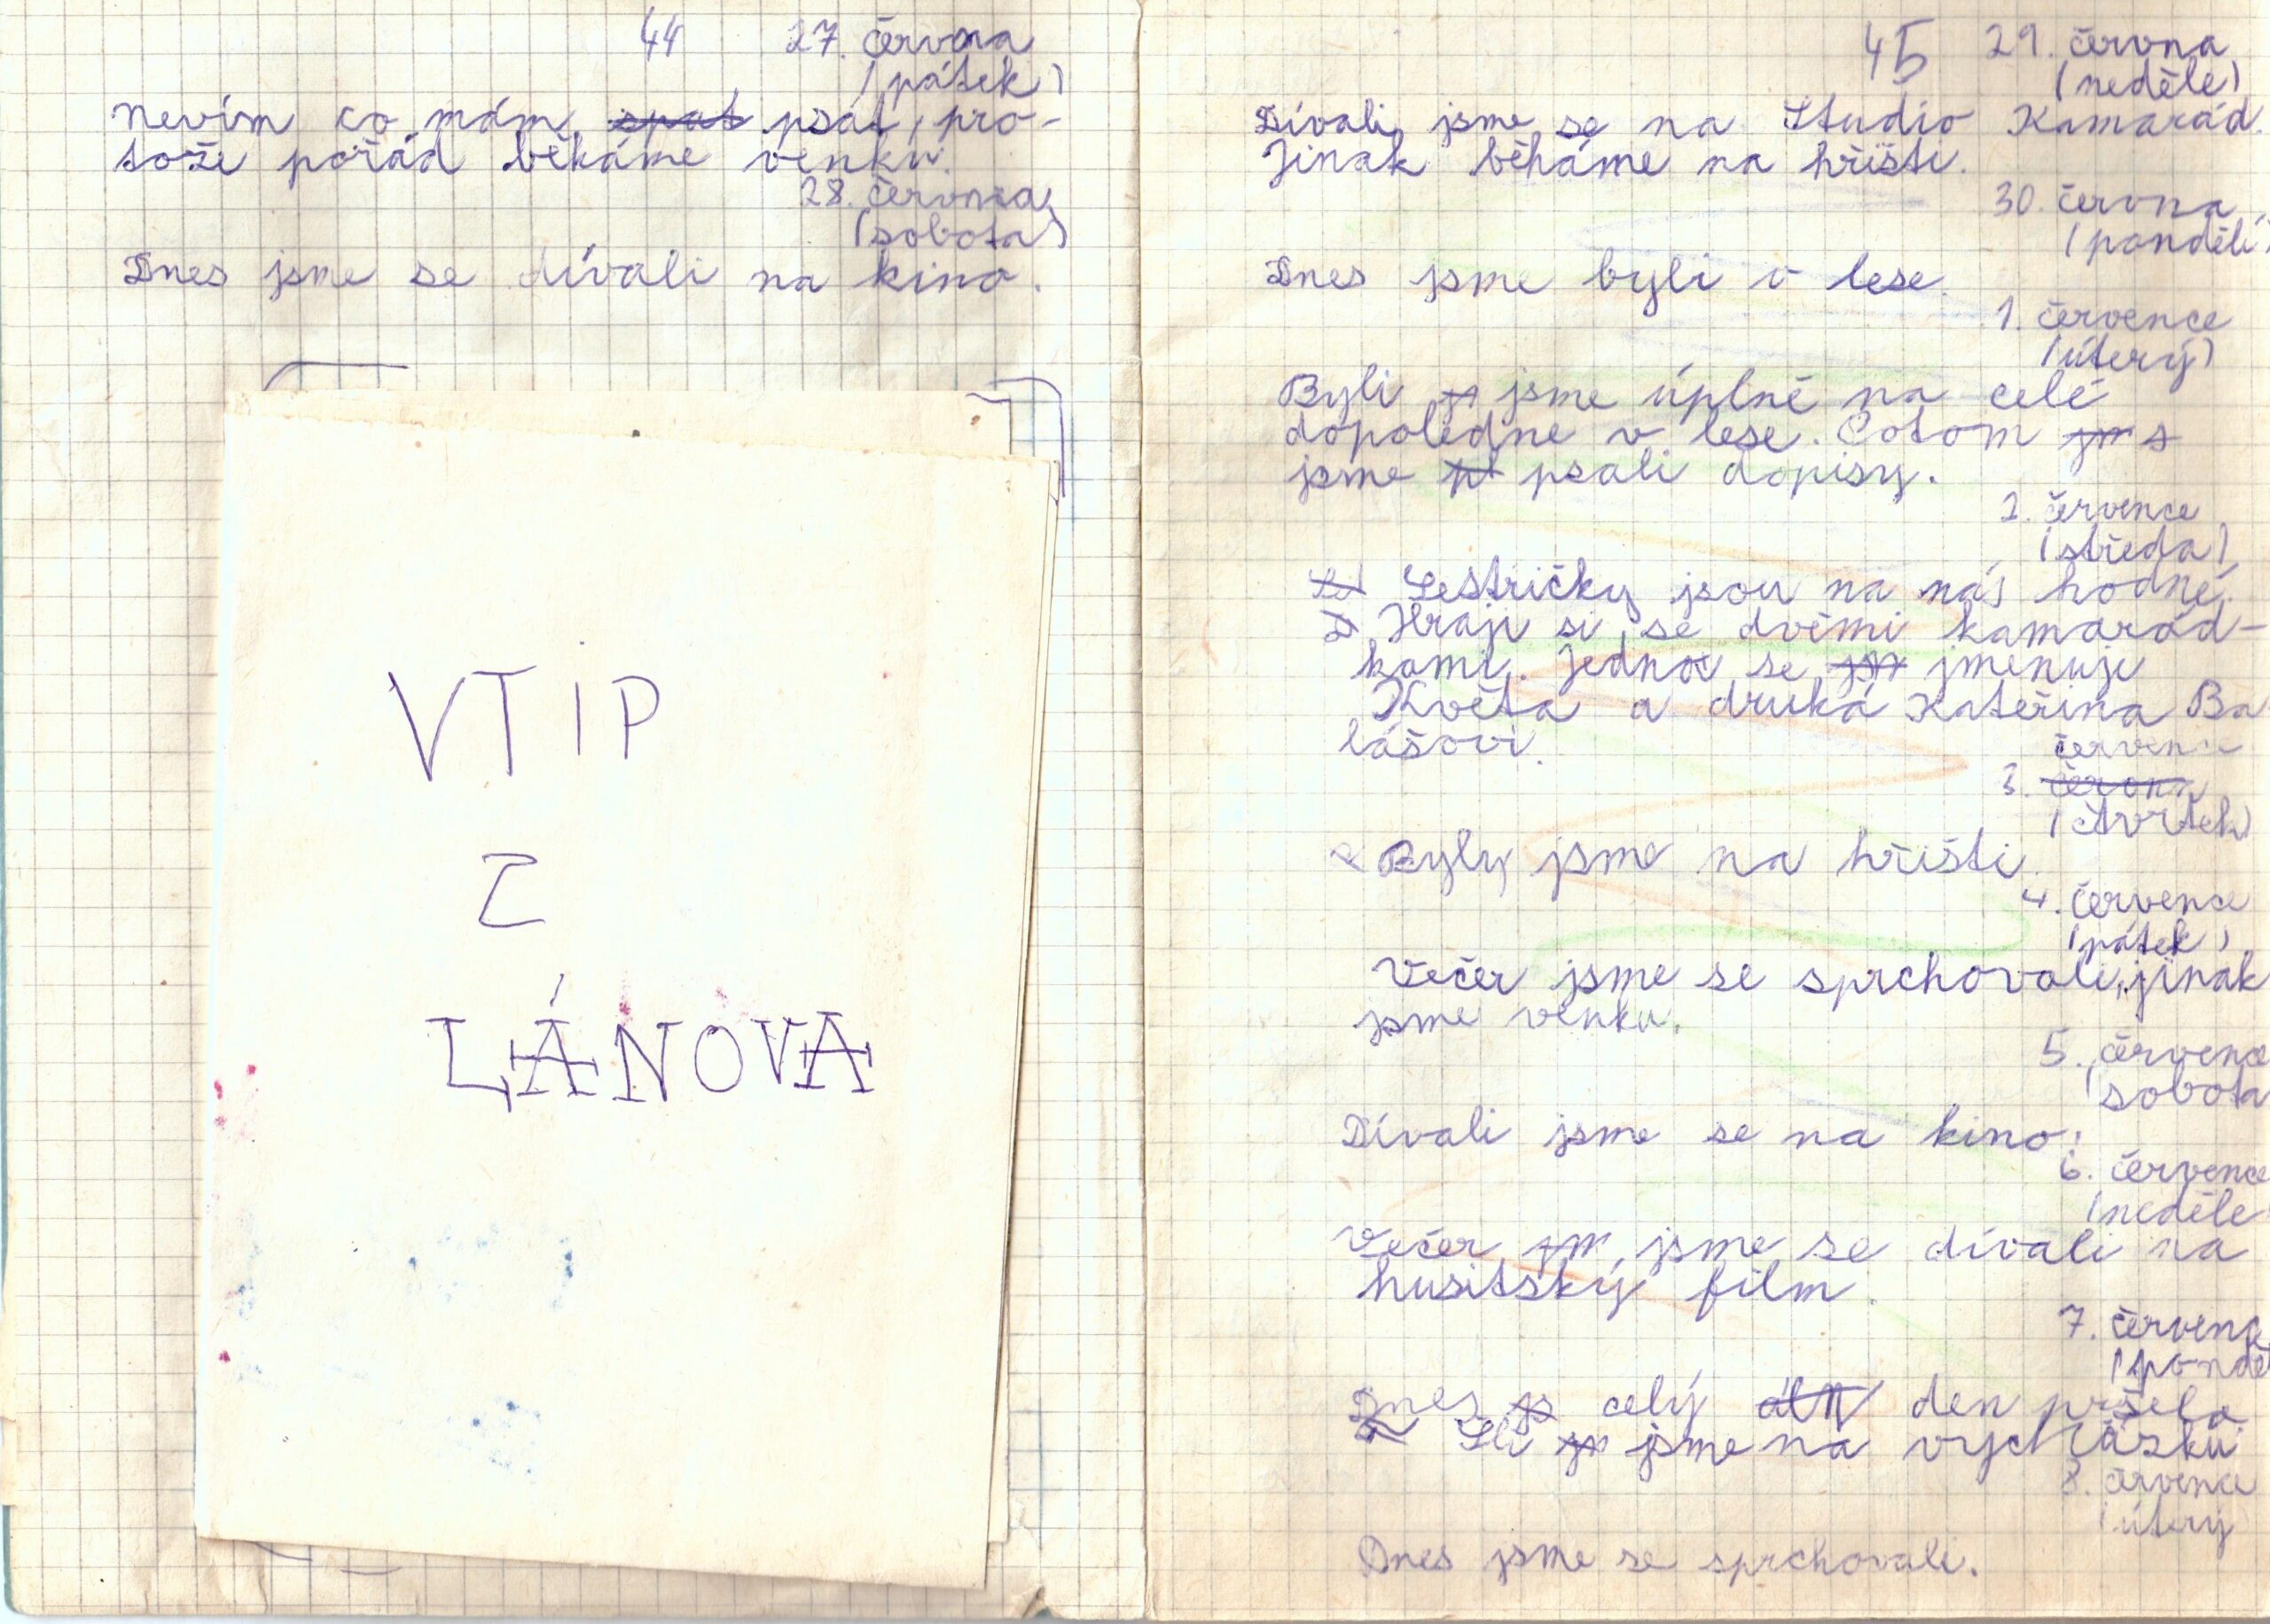 44 27. června
(pátek)
Nevím co mám spat psát, pro-
tože pořád běháme venku.
28. června
(sobota)
Dnes jsme se dívali na kino.
VTIP
Z
LÁNOVA
45 29. června
(neděle)
Dívali jsme se na Studio Kamarád.
Jinak běháme na hřišti.
30. června
(pondělí)
Dnes jsme byli v lese.
1. července
(úterý)
Byli js jsme úplně na celé
dopoledne v lese. Potom jm s
jsme pl psali dopisy.
2. července
(středa)
Sestričky jsou na nás hodné.
Hraji si se dvěmi kamarád-
kami. Jedna se jm jmenuje
Květa a druhá Kateřina Ba
lášovi.
července
3. června
(čtvrtek)
Byly jsme na hřišti.
4. července
(pátek)
Večer jsme se sprchovali, jinak
jsme venku.
5. července
(sobota
Dívali jsme se na kino.
6. července
(neděle
Večer jm jsme se dívali na
husitský film.
7. červenc
(ponděl
Dnes js celý den pršelo
Šli js jsme na vycházku
8. července
(úterý
Dnes jsme se sprchovali.